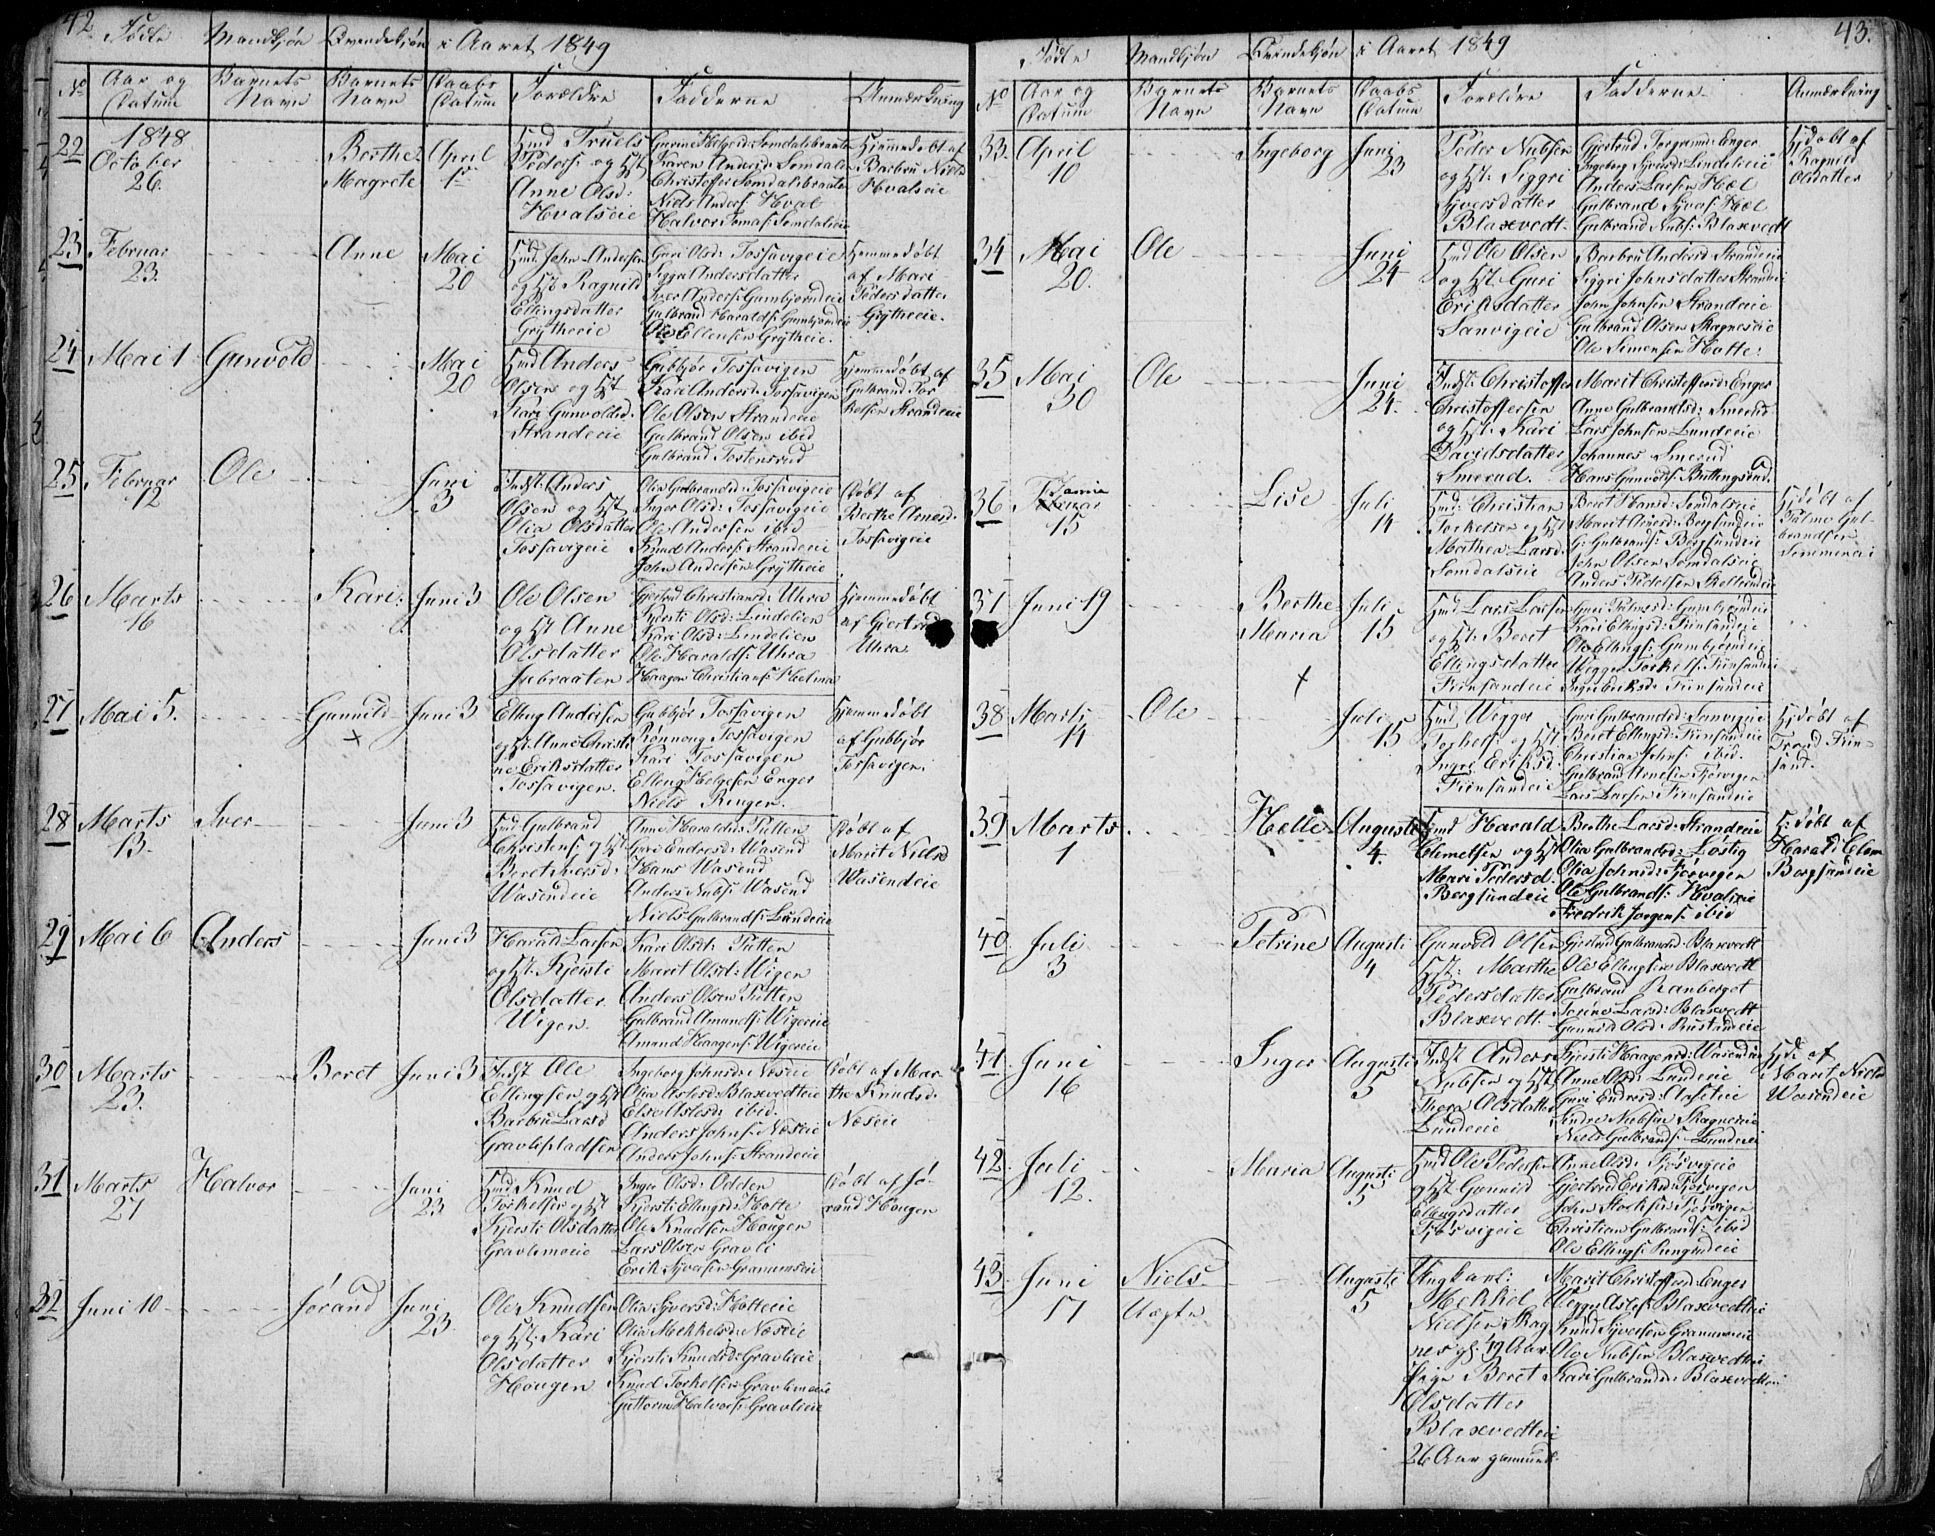 42
Fødte Mandkjøn Qvindekjøn i Aaret 1849
No
Aar og Datum
Barnets Navn
Barnets Navn
Daabs Datum
Forældre
Fadderne
Anmærkning
22
1848
October
26.
Berthe
Magrete
April
1ste
Hmd Truels
Peders: og Hst
Anne Olsd:
Hvalseie
Karen Andersd: Somdalen
Christoffer Somdalsbraaten
Niels Anders: Hval
Hjemmedøbt af
Barbru Niels
Hvalseie
23
Februar
23.
Anne
Mai
20
Hmd. John Andersen
og Hst Ragnild
Ellingsdatter
Grytheeie
Guri Olsd: Tossavigeie
Siggri Andersdatter
Iver Anders: Gumbjørndeie
Gulbrand Haralds: Gumbjørndeie
Ole Ellensen Grytheie.
Hjemmedøbt
af Mari
Pedersdatter
Grytheeie.
24
Mai 1
Gunvold
Mai
20
Hmd Anders
Olsen og Hst
Kari Gunvoldsd:
Strandeeie
Gubbjør Tossavigen
Kari Andersd: Tossavigen
Ole Olsen Strandeeie
Gulbrand Olsen ibid
Gulbrand Tostensrud
Hjemmedøbt af
Gulbrand Tor
kelsen Strandeeie
25
Februar
12
Ole
Juni
3
Indst: Anders
Olsen og Hst
Olia Olsdatter
Tossavigeie
Olia Gulbrandsd: Tossavigeie
Inger Olsd: Tossavigeie
Ole Andersen ibid
Knud Anders: Strandeeie
John Andersen Grytheie
Døbt af
Berthe Arnesd:
Tossavigeie
26
Marts
16
Kari
Juni 3
Ole Olsen
og Hst Anne
Olsdatter
Juebraaten
Gjertrud Christiansd: Uhra
Kjersti Olsd: Lindelien
Kari Olsd: Lindelien
Ole Haralds: Uhra
Haagen Christians: Helma
Hjemmedøbt
af Gjertrud
Uhra.
27
Mai 5.
Gunnild
+
Juni 3
Elling Andersen
og Hst. Anne Christi
ne Eriksdatter
Tossavigen.
Gubbjør Tossavigen
Rønnoug Tossavigen
Kari Tossavigen
Elling Helgesen Enger
Niels Ringen.
Hjemmedøbt
af Gubbjør
Tossavigen.
28
Marts
13.
Iver
Juni 3
Hmd Gulbrand
Christens: og Hst
Beret Iversd:
Wasendeie
Anne Haraldsd: Putten
Guri Endresd: Wasend
Hans Wasend
Anders Nubs: Wasend
Niels Gulbrands: Lundeeie
Døbt af
Marit Nielsd
Wasendeie
29
Mai 6
Anders
Juni 3
Harald Larsen
og Hst. Kjersti
Olsdatter
Wigen.
Kari Olsdt: Putten
Marit Olsd: Wigen
Anders Olsen Putten
Gulbrand Amunds: Wigeeie
Amund Haagens: Wigeeie
30
Marts
23.
Beret
Juni 3
Indst Ole
Ellingsen og Hst
Barbru Larsd
Gravlipladsen
Ingeborg Johnsd: Næseie
Olia Aslesd: Blaxevedteie
Else Aslesd: ibid.
Anders Johns: Næseie
Anders Johns: Strandeeie
Døbt af Mar
the Knudsd:
Næseie
31
Marts
27
Halvor
Juni
23
Hmd Knud
Torkelsen og Hst
Kjersti Olsdatter
Gravlimoeie
Inger Olsd: Odden
Kjersti Ellingsd: Hatte
Ole Knudsen Hougen
Lars Olsen Gravli
Erik Syversen Granumseie
Døbt af Jø-
rand Hougen
32
Juni 10
Jørand
Juni
23.
Ole Knudsen
og Hst. Kari
Olsdatter
Hougen
Olia Syversd: Hatteeie
Olia Mekkelsd: Næseie
Kjersti Knudsd: Gravlieie
Knud Torkelsen Gravlimoeie
Guttorm Halvors: Gravlieie
43.
Fødte Mandkjøn Qvindekjøn i Aaret 1849
No
Aar og Datum
Barnets Navn
Barnets Navn
Daabs Datum
Forældre
Fadderne
Anmærkning
33.
April
10
Ingeborg
Juni
23
Peder Nubsen
og Hst: Siggri
Syversdatter
Blaxevedt.
Gjertrud Torgrimsd: Enger
Ingeborg Syversd: Lindelieeie
Anders Larsen Hæl
Gulbrand Syvers: Hæl
Gulbrand Nubs: Blaxevedt
Hjdøbt af
Ragnild
Olsdatter
34
Mai
20.
Ole
Juni
24
Hmd Ole Olsen
og Hst. Guri
Eriksdatter
Sanvigeie
Barbru Andersd: Strandeeie
Siggri Johnsdatter Strandeeie
John Johnsen Strandeeie
Gulbrand Olsen Skagneseie
Ole Simensen Hatte.
35
Mai
30
Ole
Juni
24.
Indst: Christoffer
Christoffersen
og Hst. Kari
Davidsdatter
Smerud.
Marit Christoffersd: Enger
Anne Gulbrandsd: Smerud
Lars Johnsen Lundeeie
Johannes Smerud
Hans Gunvolds: Buttingsrud.
36
15
Lise
Juli
14
Hmd: Christian
Torkelsen og Hst
Mathea Larsd:
Somdalseie
Beret Hansd: Somdalseie
Marit Arnesd: Bergsundeie
G: Gulbrands: Bergsundeie
John Olsen Somdalseie
Hjdøbt af
Palme Gul-
brandsen
37
Juni 19
Berthe
Maria
+
Juli
15
Hmd Lars Larsen
og Hst: Beret
Ellingsdatter
Finsandeie
Guri Palmesd: Gumbjørndeie
Kari Ellingsd: Finsandeie
Ole Ellings: Gumbjørndeie
Wegger Torkels: Finsandeie
Inger Eriksd: Finsandeie
38
Marts
14
Ole
Juli
15
Hmd Wegger
Torkels: og Hst
Ingri Eriksd:
Finsandeie
Guri Gulbrandsd: Sanvigeie
Beret Ellingsd: Finsandeie
Christian Johns: ibid.
Gulbrand Arnesen Fjørvigen
Lars Larsen Finsandeie
Hjdøbt af
Trond Fin-
sand.
39
Marts
1
Helle
Augusti
4.
Hmd Harald
Clemetsen og Hst
Mari Pedersd:
Bergsundeie
Berthe Larsd: Strandeeie
Olia Gulbrandsd: Løstig
Olia Johnsd: Fjørvigen
Ole Gulbrands: Hvalseie
Fredrik Jørgens: ibid
H: døbt af
Harald Clem
Bergsundeie
40
Juli
3
Petrine
Augusti
4
Gunvold Olsen
Hst: Marthe
Pedersdatter
Blaxevedt.
Gjertrud Gulbrandsd: Blaxevedt
Ole Ellingsen Blaxevedt
Gulbrand Ranberget
Torine Larsd: Blaxevedt
Gunnild Olsd: Rustandeie
41
Juni
16
Inger
Augusti
5
Indst Anders
Nubsen og Hst
Thora Olsdatter
Lundeeie
Kjersti Haagensd: Wasendeie
Anne Olsd: Lundeeie
Guri Endresd: Aaseteie
Endre Nubsen Skagneseie
Niels Gulbrands: Lundeeie
Hjd: af
Marit Niels
Wasendeie
42
Juli
12.
Maria
Augusti
5
Hmd Ole Pedersen
og Hst Gunnild
Ellingsdatter
Fjørvigeie
Anne Olsd: Fjørvigeie
Gjertrud Eriksd: Fjørvigen
John Torkelsen Fjørvigen
Christian Gulbrands: ibid
Ole Ellings: Ringerudeie
43
Juni
17
Niels
Uægte
Augusti
5
Ungkarl:
Mekkel
Nielsen Skag
nes gl: 19 Aar
Pige Beret
Olsdatter
Blaxevedteie
26 Aar gammel.
Marit Christoffersd: Enger
Wegger Asles: Blaxevedteie
Knud Syversen Granumseie
Ole Nubsen Blaxevedteie
Kari Gulbrandsd: Blaxevedteie